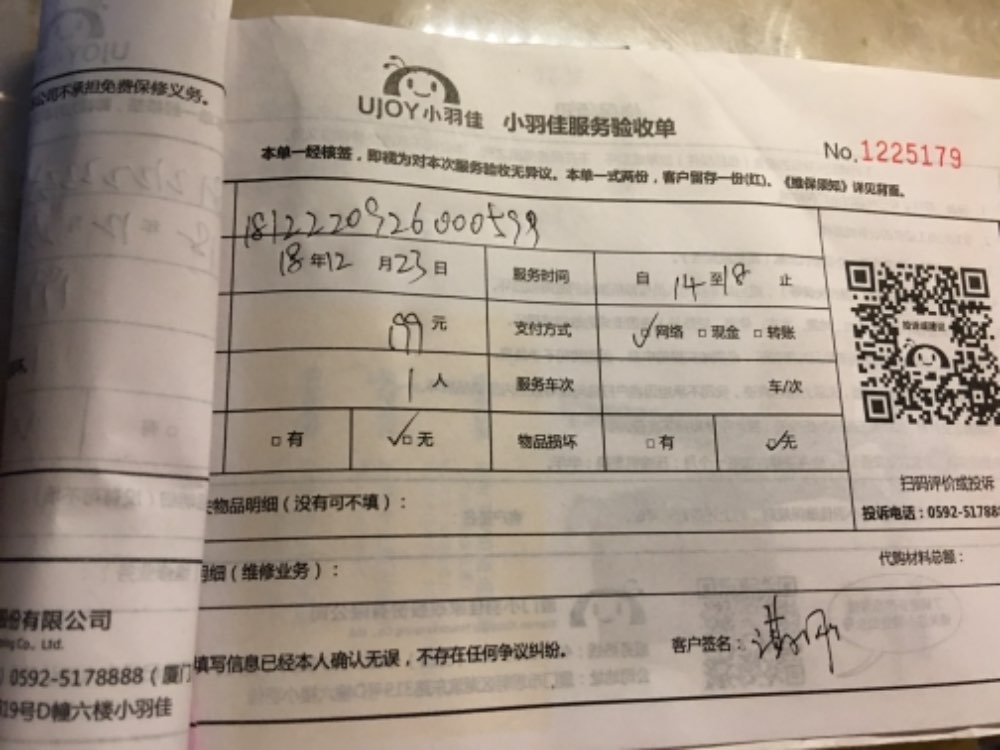 公司不承担免费保修义务。
UJOY小羽佳 小羽佳服务验收单
No.1225179
本单一经核签，即视为对本次服务验收无异议。本单一式两份，客户留存一份(红)。《维保须知》详见背面。
1812220926000599
18年12月23日 服务时间 自14至18止
199元 支付方式 ☑网络 □现金 □转账
1人 服务车次 车/次
□有 ☑无 物品损坏 □有 ☑无
物品明细（没有可不填）：
扫码评价或投诉
投诉电话：0592-51788
明细（维修业务）：
代购材料总额：
填写信息已经本人确认无误，不存在任何争议纠纷。
客户签名：
份有限公司
Co., Ltd.
0592-5178888（厦门
19号D幢六楼小羽佳
投诉或建议